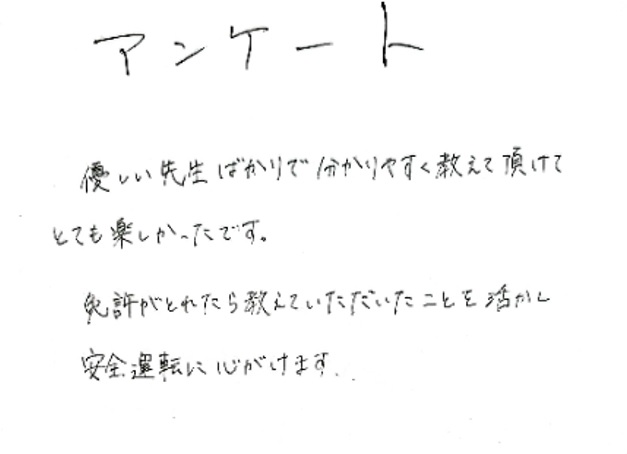 アンケート
優しい先生ばかりで分かりやすく教えて頂けて
とても楽しかったです。
免許がとれたら教えていただいたことを活かし
安全運転に心がけます.